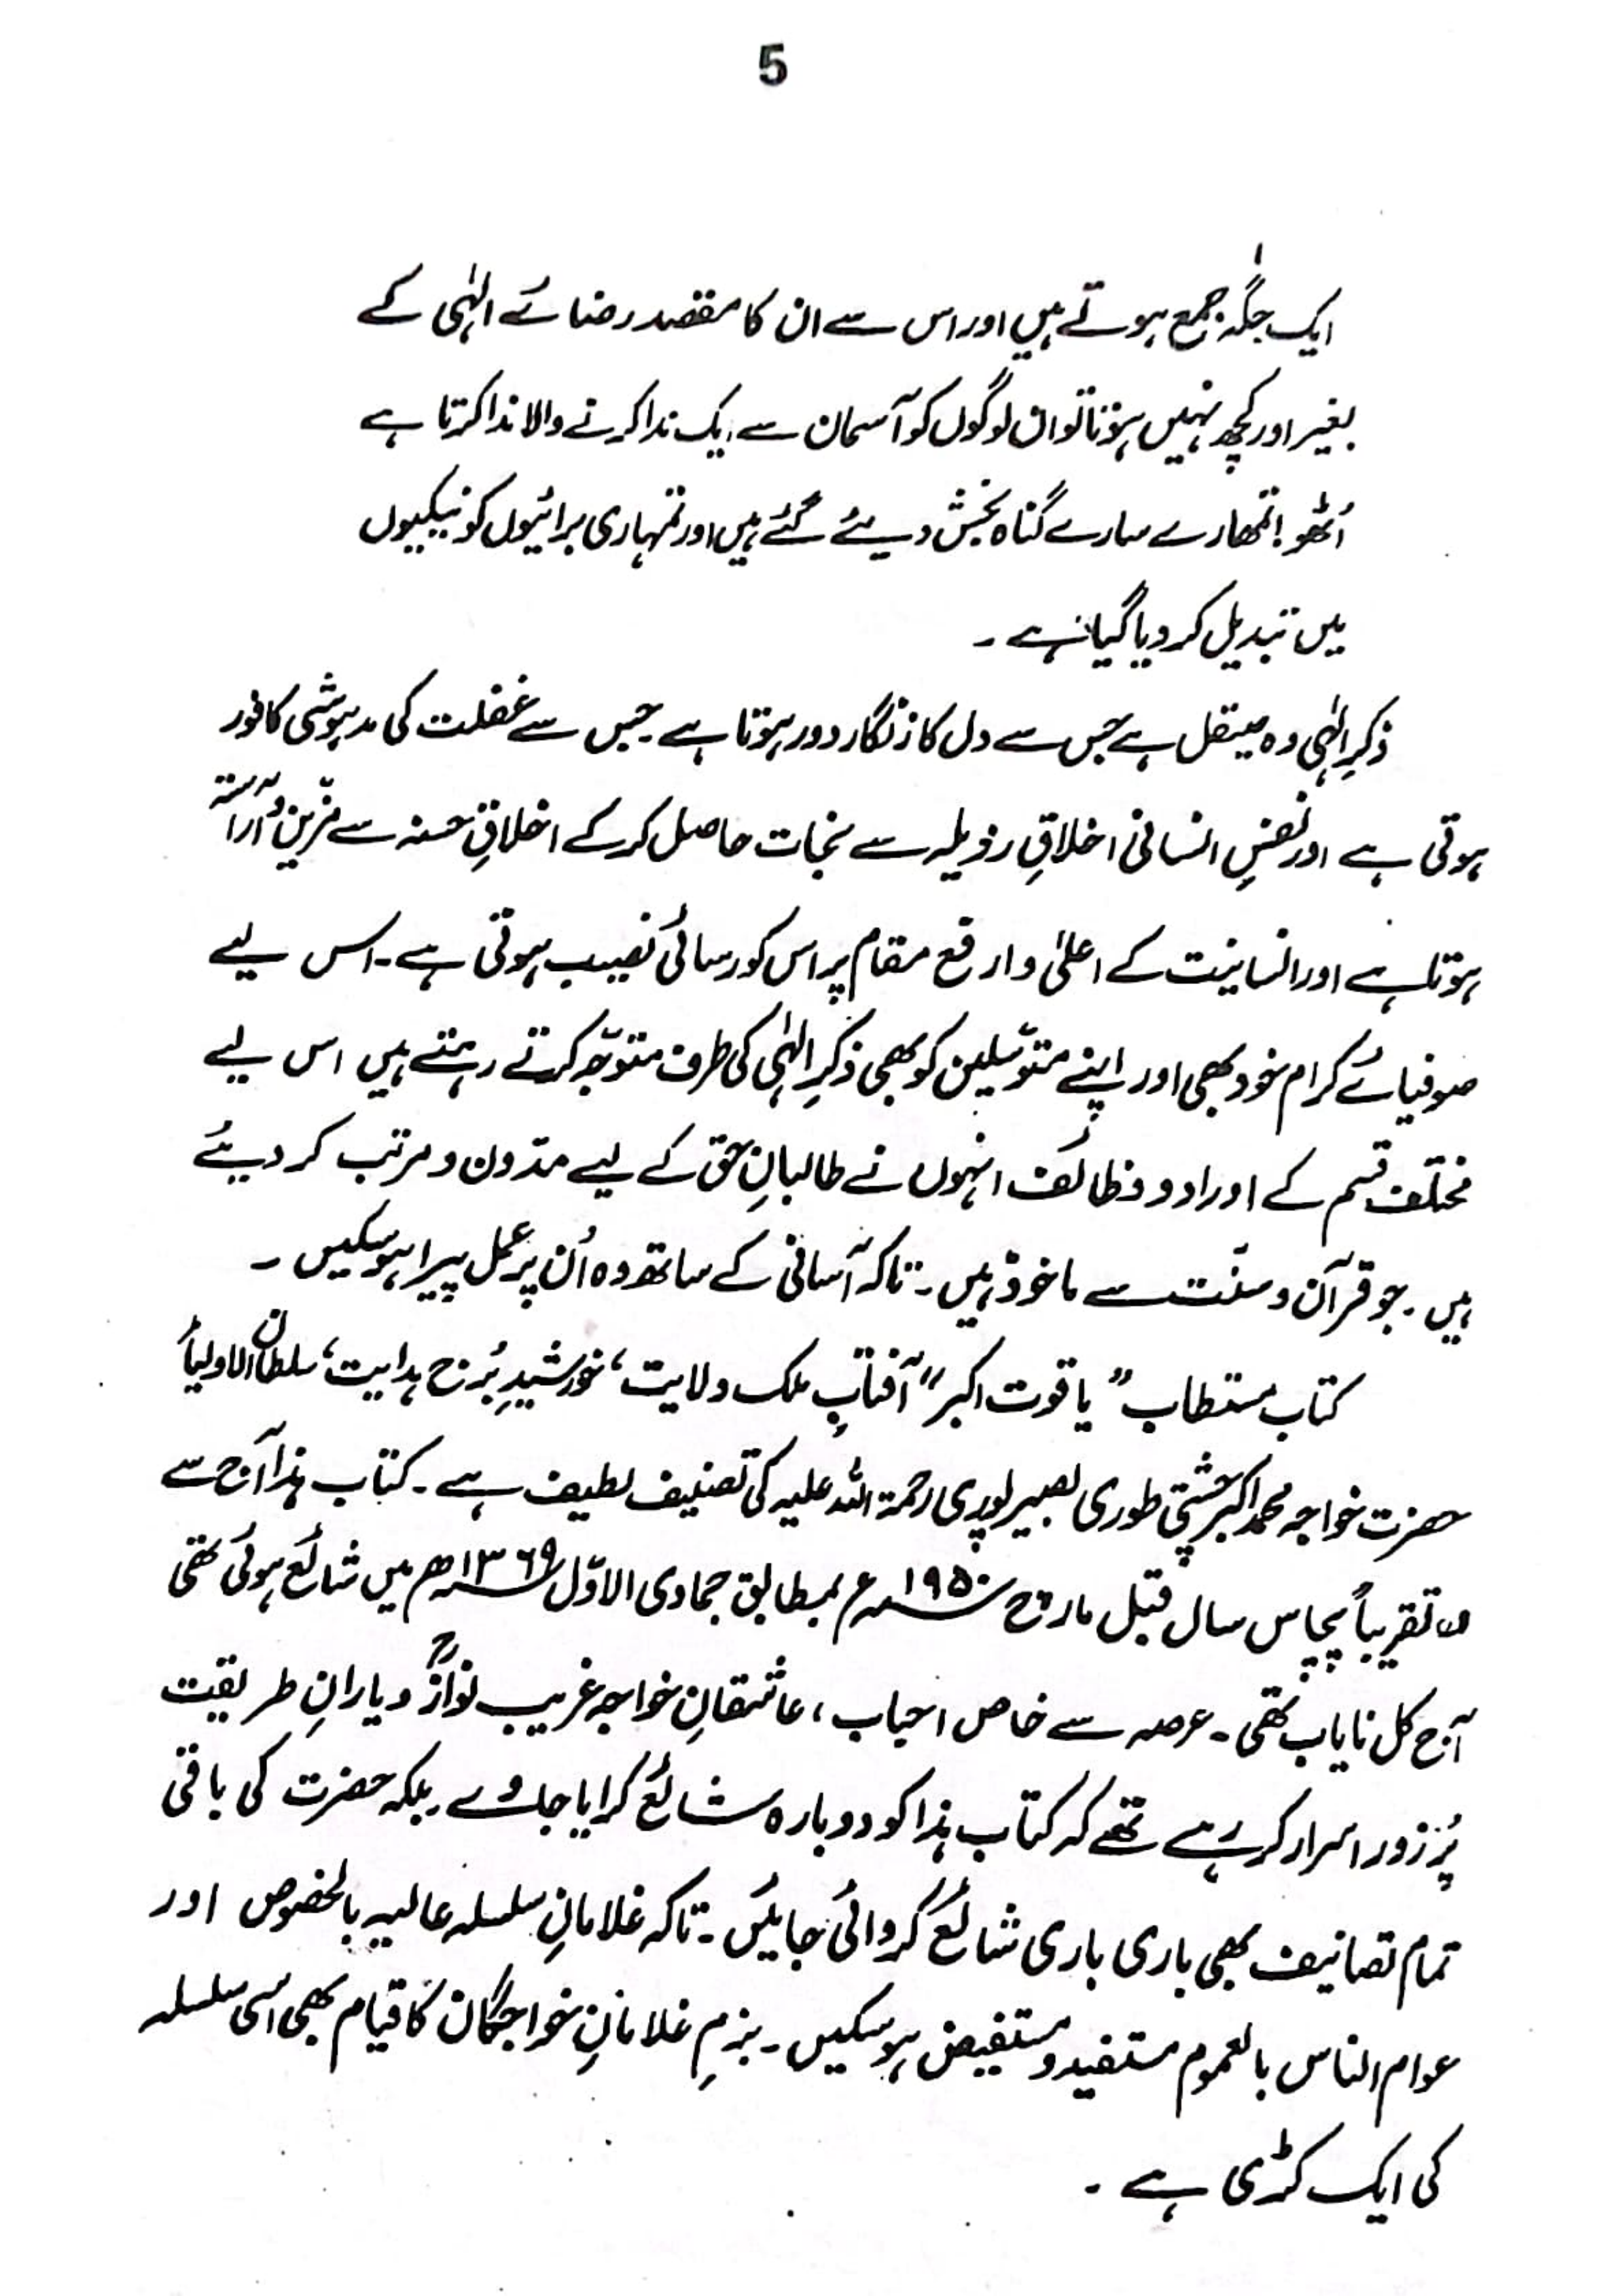 5
ایک جگہ جمع ہوتے ہیں اور اس سے ان کا مقصد رضائے الہٰی کے
بغیر اور کچھ نہیں ہوتا تو ان لوگوں کو آسمان سے ایک ندا کرنے والا ندا کرتا ہے
اُٹھو! تمھارے سارے گناہ بخش دیئے گئے ہیں اور تمہاری برائیوں کو نیکیوں
میں تبدیل کر دیا گیا ہے ۔
ذکرِ الٰہی وہ صیقل ہے جس سے دل کا زنگار دور ہوتا ہے جس سے غفلت کی مدہوشی کافور
ہوتی ہے اور نفسِ انسانی اخلاقِ رذیلہ سے نجات حاصل کر کے اخلاقِ حسنہ سے مزّین و آراستہ
ہوتا ہے اور انسانیت کے اعلیٰ و ارفع مقام پر اس کو رسائی نصیب ہوتی ہے ۔ اس لیے
صوفیائے کرام خود بھی اور اپنے متوسّلین کو بھی ذکرِ الہٰی کی طرف متوجّہ کرتے رہتے ہیں اس لیے
مختلف قسم کے اوراد و وظائف انہوں نے طالبانِ حق کے لیے مدّون و مرتب کر دیئے
ہیں ۔ جو قرآن و سنّت سے ماخوذ ہیں ۔ تاکہ آسانی کے ساتھ وہ اُن پر عمل پیرا ہو سکیں ۔
کتاب مستطاب ”یاقوت اکبر“ آفتابِ ملک ولایت، خورشیدِ بُرج ہدایت، سلطان الاولیاء
حضرت خواجہ محمد اکبر چشتی طوری بصیر پوری رحمۃ اللہ علیہ کی تصنیف لطیف ہے ۔ کتاب ہٰذا آج سے
تقریباً پچاس سال قبل مارچ ۱۹۵۰ء بمطابق جمادی الاوّل ۱۳۶۹ھ میں شائع ہوئی تھی
آج کل نایاب تھی ۔ عرصہ سے خاص احباب، عاشقانِ خواجہ غریب نوازؒ و یارانِ طریقت
پُر زور اسرار کر رہے تھے کہ کتاب ہٰذا کو دوبارہ شائع کرایا جاوے بلکہ حضرت کی باقی
تمام تصانیف بھی باری باری شائع کروائی جائیں ۔ تاکہ غلامانِ سلسلہ عالیہ بالخصوص اور
عوام الناس بالعموم مستفید و مستفیض ہو سکیں ۔ بزمِ غلامانِ خواجگان کا قیام بھی اسی سلسلہ
کی ایک کڑی ہے ۔